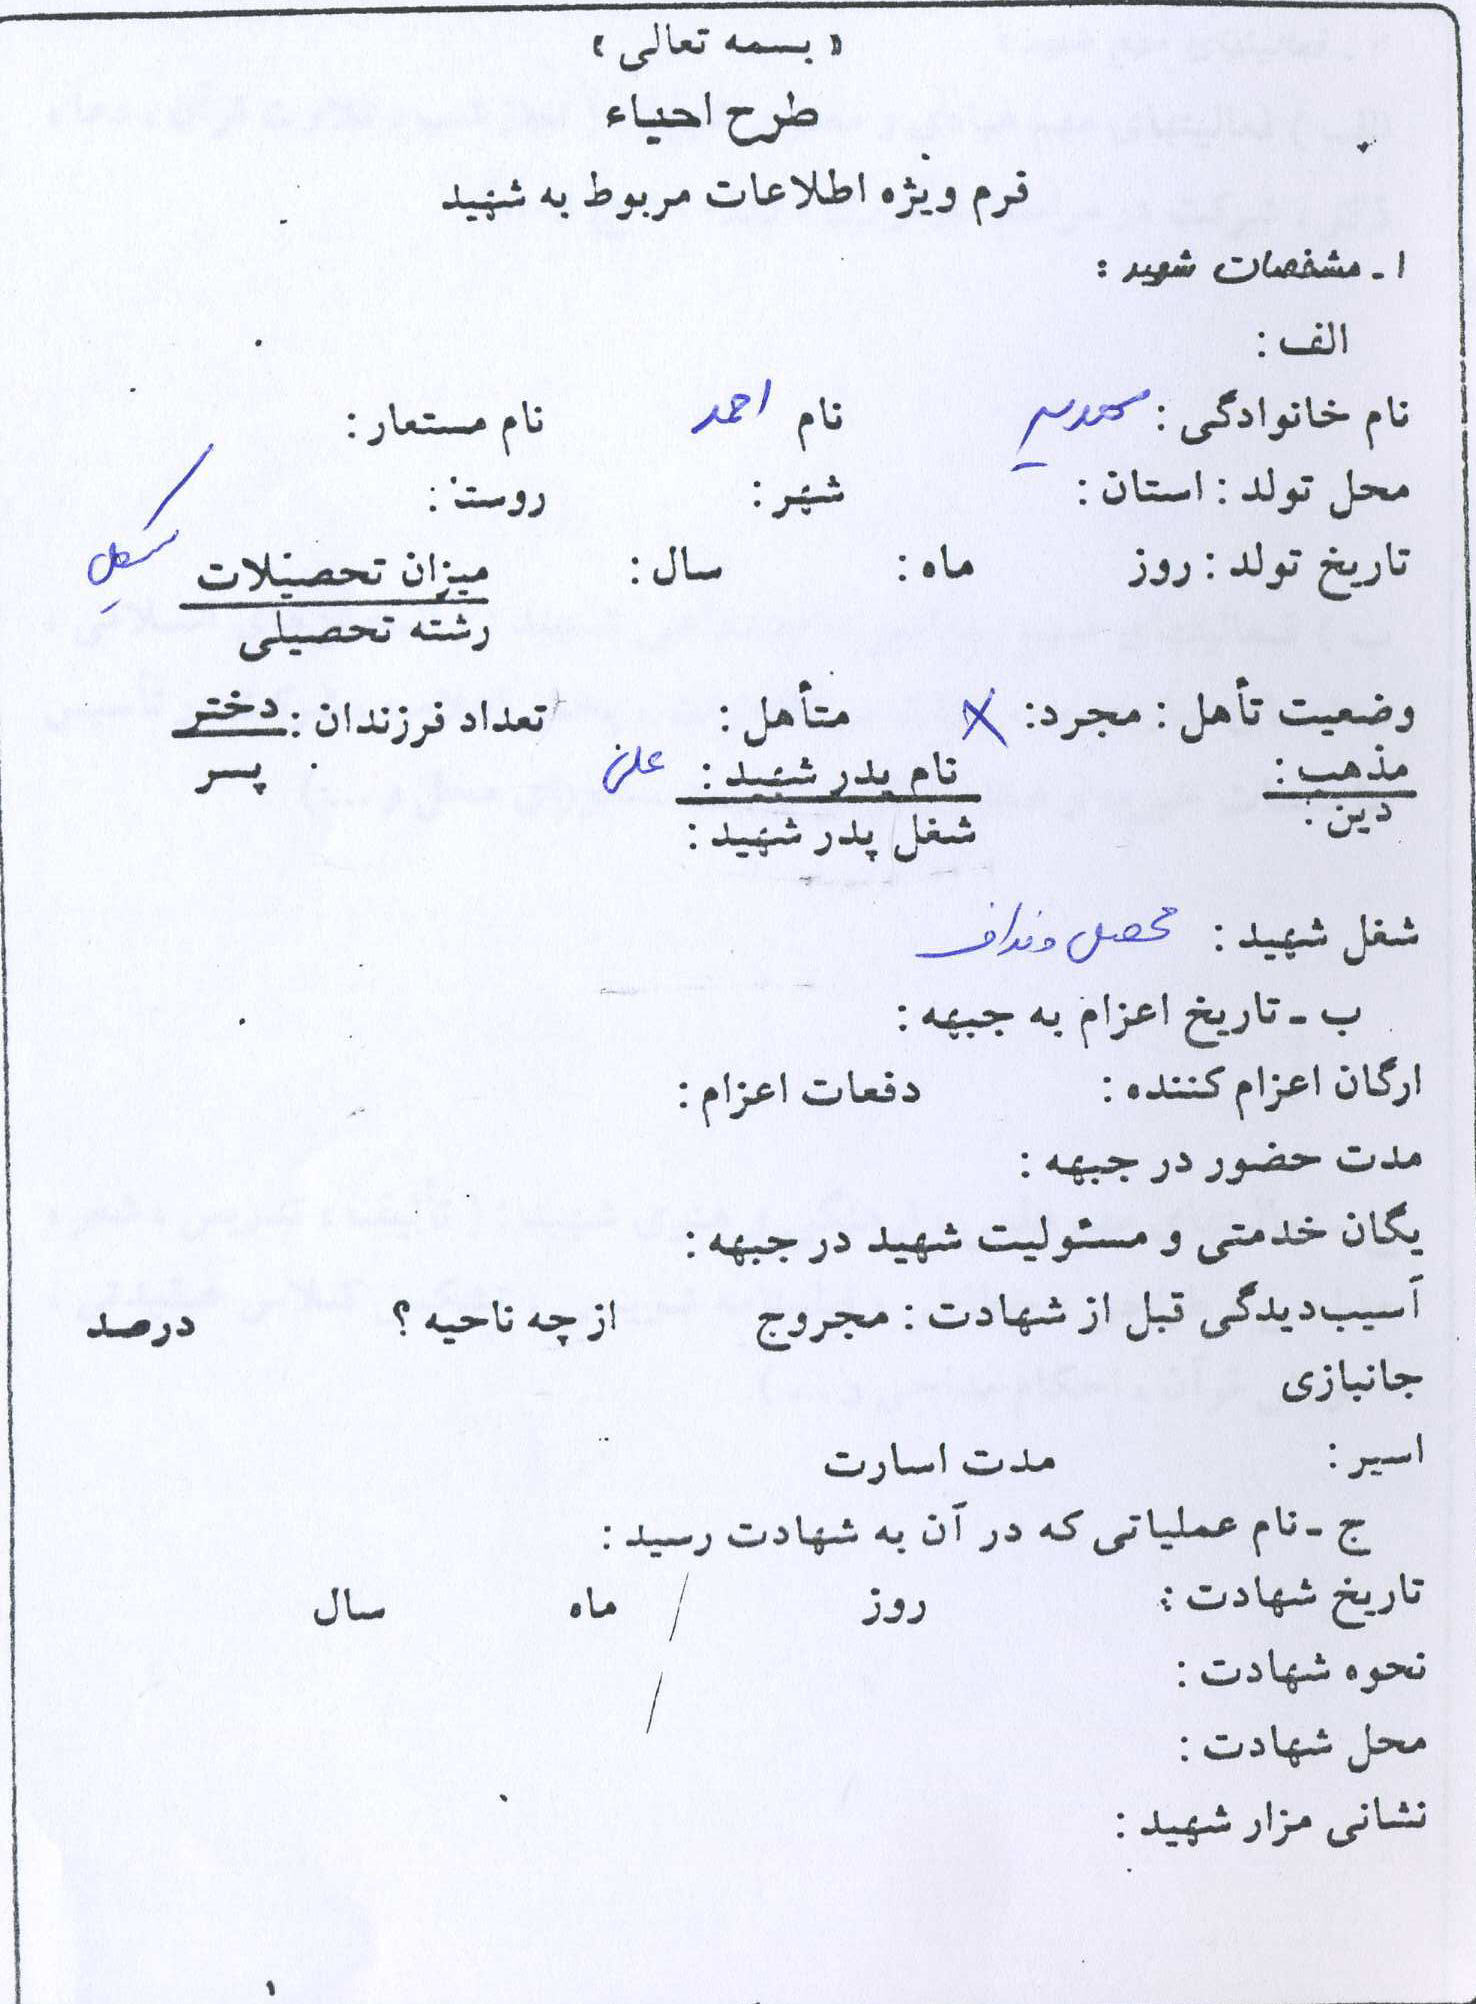 « بسمه تعالی »
طرح احیاء
فرم ویژه اطلاعات مربوط به شهید
۱ ـ مشخصات شهید :
الف :
نام خانوادگی : نام احمد نام مستعار :
محل تولد : استان : شهر : روستا :
تاریخ تولد : روز ماه : سال : میزان تحصیلات
رشته تحصیلی
وضعیت تأهل : مجرد : X متأهل : تعداد فرزندان : دختر
پسر
مذهب : نام پدر شهید : علی
دین : شغل پدر شهید :
شغل شهید : محصل
ب ـ تاریخ اعزام به جبهه :
ارگان اعزام کننده : دفعات اعزام :
مدت حضور در جبهه :
یگان خدمتی و مسئولیت شهید در جبهه :
آسیب‌دیدگی قبل از شهادت : مجروح از چه ناحیه ؟ درصد
جانبازی
اسیر : مدت اسارت
ج ـ نام عملیاتی که در آن به شهادت رسید :
تاریخ شهادت : روز ماه سال
نحوه شهادت :
محل شهادت :
نشانی مزار شهید :
۱